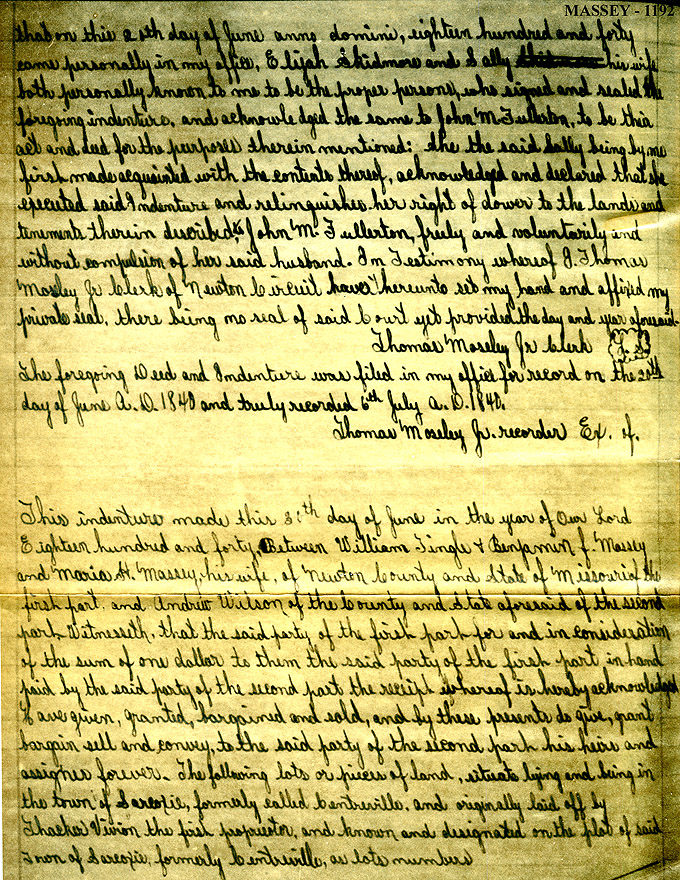 MASSEY - 1192
that on this 20th day of June anno domini, eighteen hundred and forty
came personally in my office, Elijah Skidmore and Sally his wife
both personally known to me to be the proper persons, who signed and sealed the
foregoing indenture, and acknowledged the same to John M. Fullerton, to be this
act and deed for the purposes therein mentioned: she the said Sally being by me
first made acquainted with the contents thereof, acknowledged and declared that she
executed said Indenture and relinquishes her right of dower to the lands and
tenements therein described, to John M. Fullerton, freely and voluntarily and
without compulsion of her said husband. In Testimony whereof I, Thomas
Mosley Jr Clerk of Newton Circuit have hereunto set my hand and affixed my
private seal, there being no seal of said Court yet provided the day and year aforesaid.
Thomas Moseley Jr Clerk
The foregoing Deed and Indenture was filed in my office for record on the 20th
day of June A. D. 1840 and truly recorded 6th July A. D. 1840.
Thomas Moseley Jr. recorder Ex. of.
This indenture made this day of June in the year of Our Lord
Eighteen hundred and forty, Between William Tingle & Benjamin f. Massey
and Maria H. Massey, his wife, of Newton County and State of Missouri of the
first part, and Andrew Wilson of the County and State aforesaid of the second
part Witnesseth, that the said party of the first part for and in consideration
of the sum of one dollar to them the said party of the first part in hand
paid by the said party of the second part the receipt whereof is hereby acknowledged
Have given, granted, bargained and sold, and by these presents do give, grant
bargain sell and convey, to the said party of the second part his heirs and
assigns forever. The following lots or pieces of land, situate lying and being in
the town of Sarcoxie, formerly called Centreville, and originally laid off by
Thacker Vivion the first proprietor, and known and designated on the plat of said
Town of Sarcoxie, formerly Centreville, as lots numbers